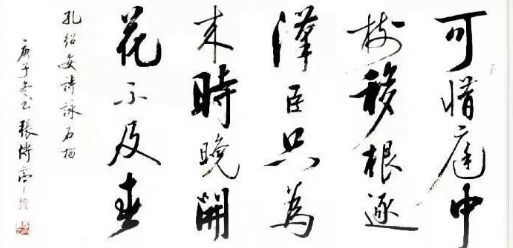 可惜庭中
樹移根逐
漢臣只為
来時晚開
花不及春
孔紹安詩詠石榴
庚子冬書張傳亭